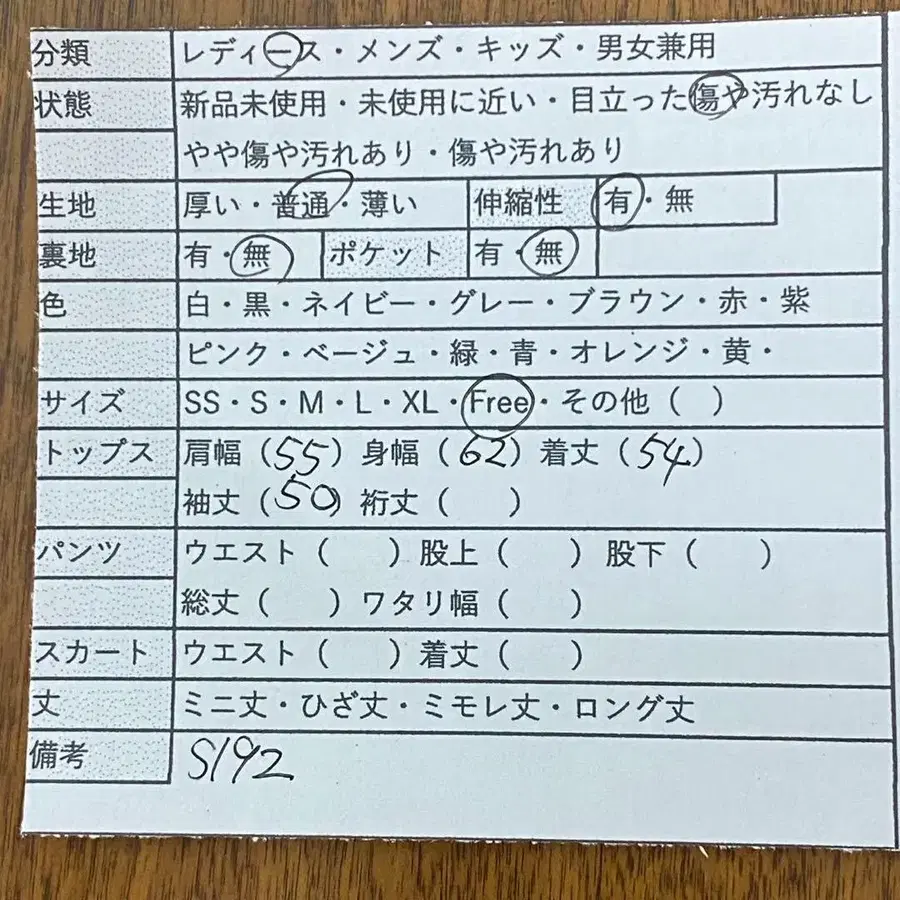 分類 レディース・メンズ・キッズ・男女兼用
状態 新品未使用・未使用に近い・目立った傷や汚れなし
やや傷や汚れあり・傷や汚れあり
生地 厚い・普通・薄い 伸縮性 有・無
裏地 有・無 ポケット 有・無
色 白・黒・ネイビー・グレー・ブラウン・赤・紫
ピンク・ベージュ・緑・青・オレンジ・黄・
サイズ SS・S・M・L・XL・Free・その他（ ）
トップス 肩幅（55）身幅（62）着丈（54）
袖丈（50）裄丈（ ）
パンツ ウエスト（ ）股上（ ）股下（ ）
総丈（ ）ワタリ幅（ ）
スカート ウエスト（ ）着丈（ ）
丈 ミニ丈・ひざ丈・ミモレ丈・ロング丈
備考 S192